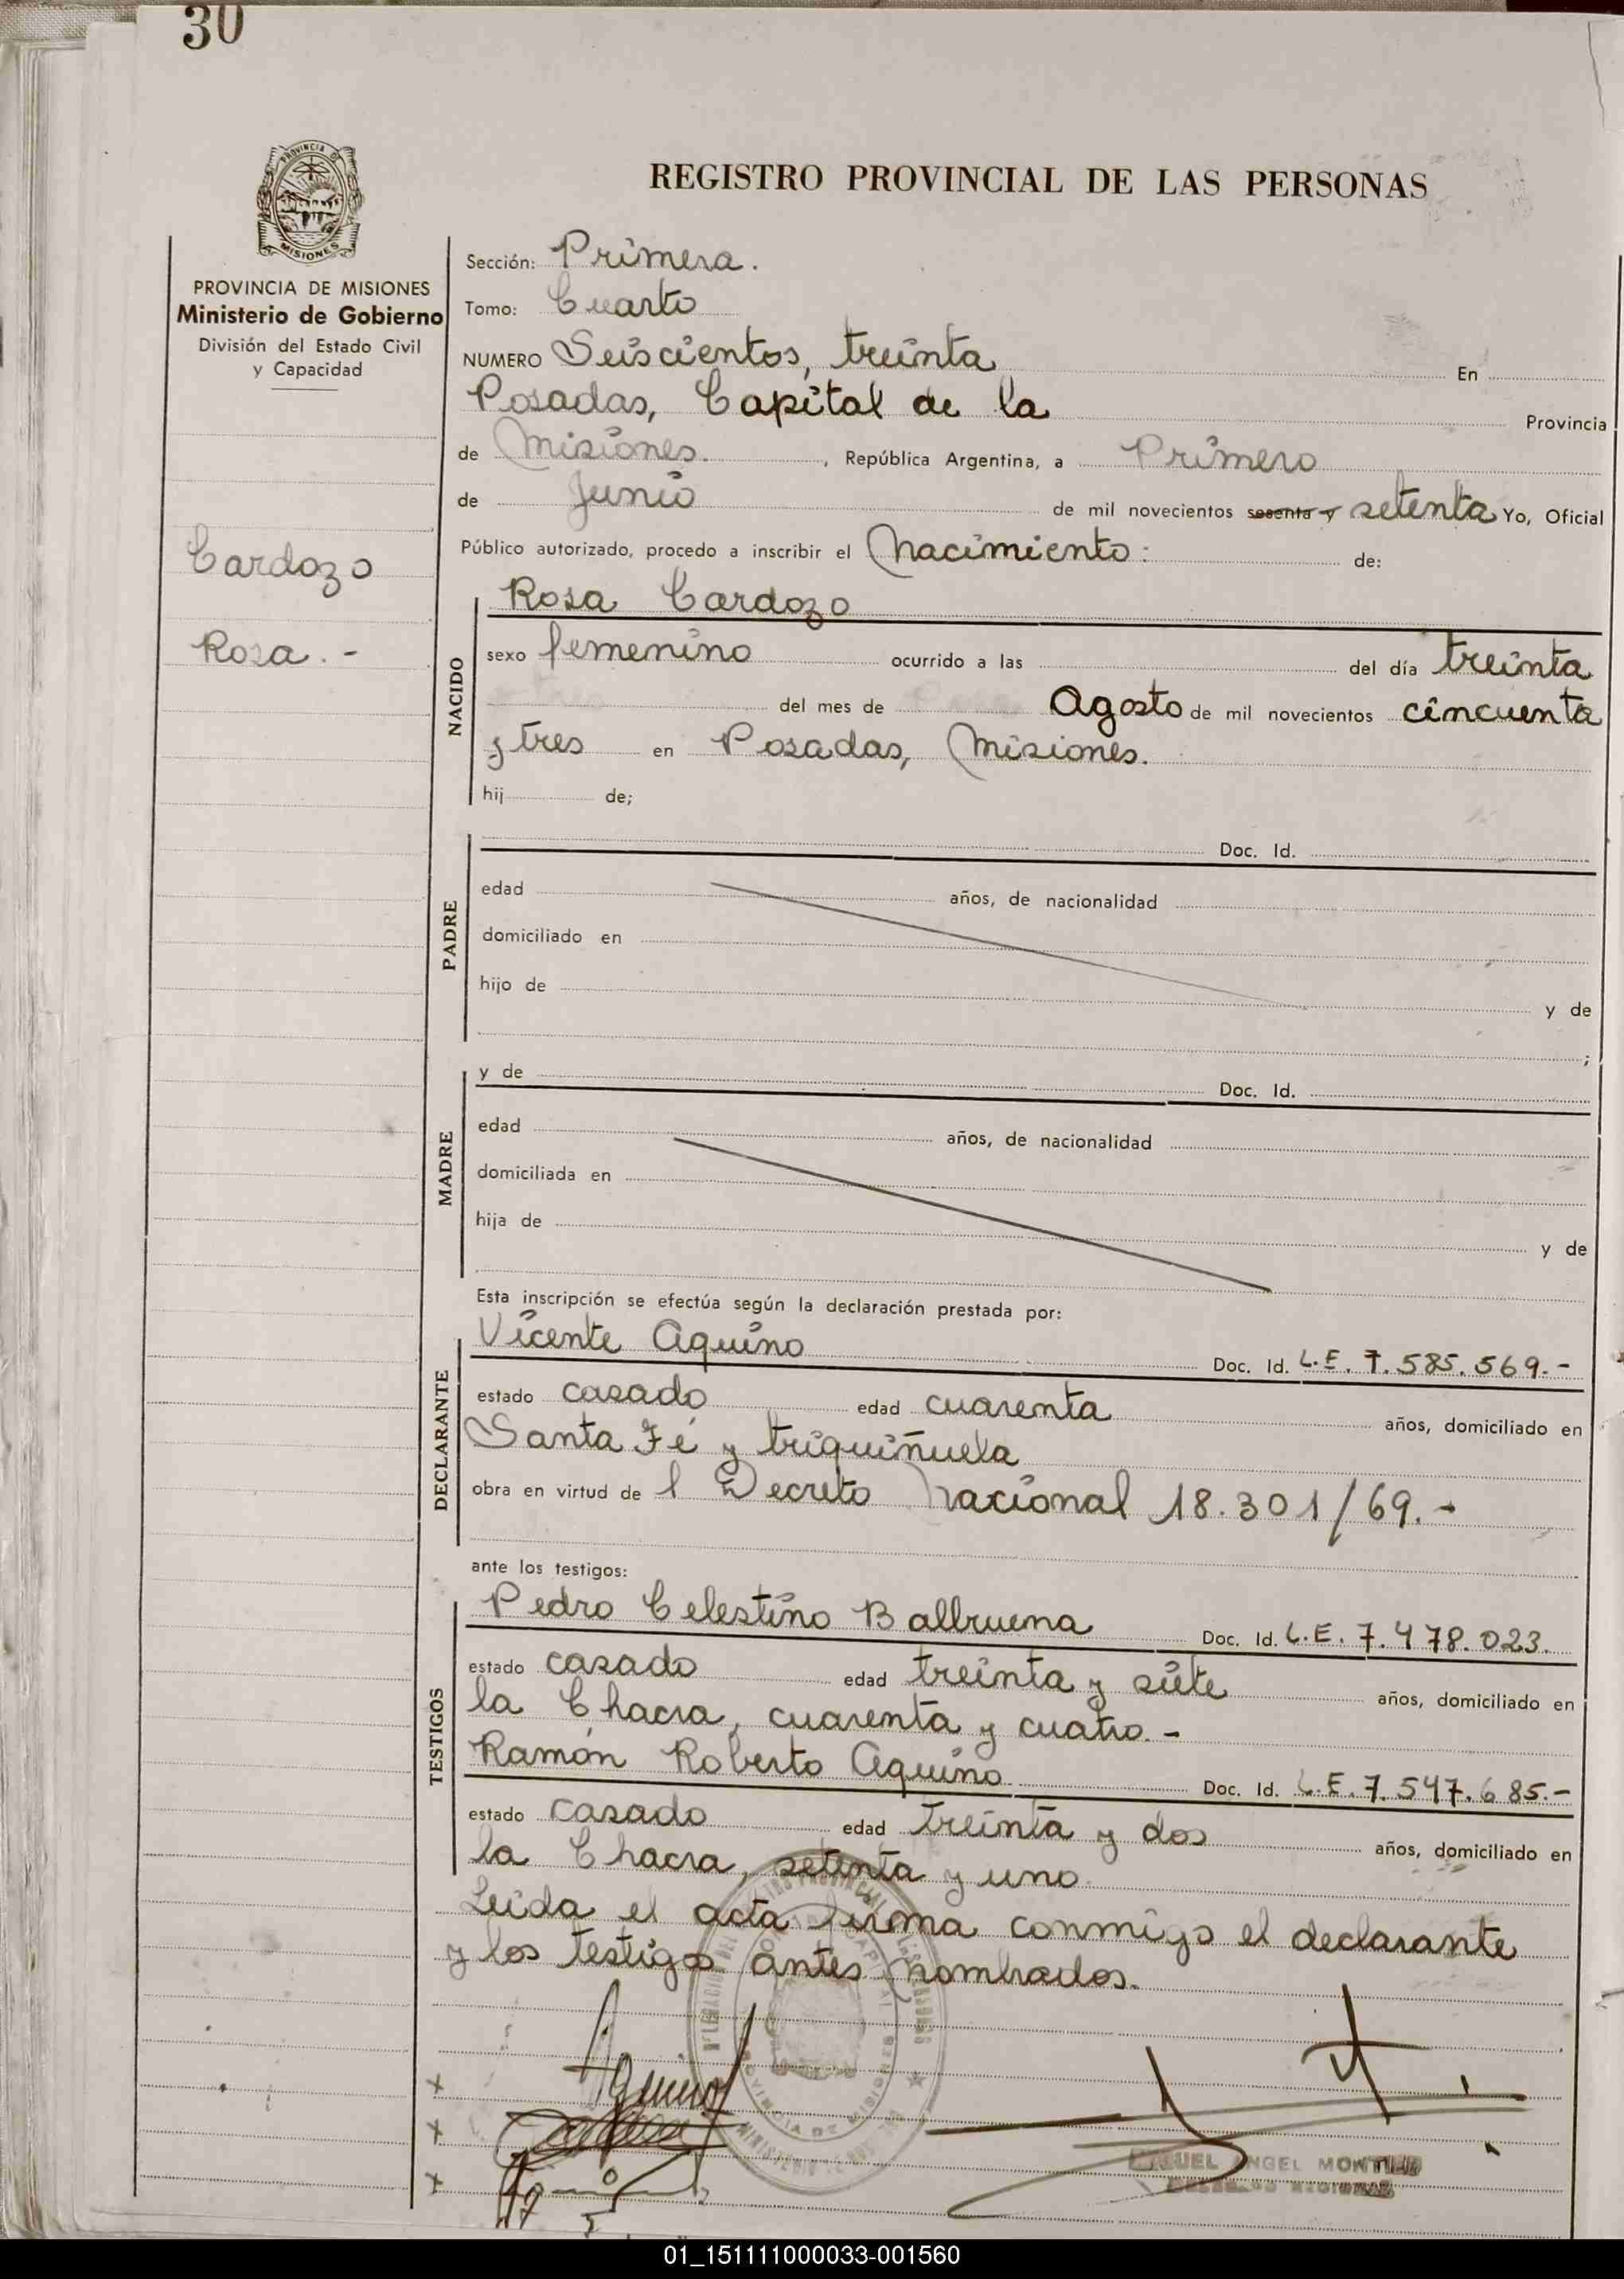 30
PROVINCIA DE
MISIONES
REGISTRO PROVINCIAL DE LAS PERSONAS
PROVINCIA DE MISIONES
Ministerio de Gobierno
División del Estado Civil
y Capacidad
Cardozo
Rosa.-
Sección: Primera.
Tomo: Cuarto
NUMERO Seiscientos, treinta En
Posadas, Capital de la Provincia
de Misiones. , República Argentina, a Primero
de Junio de mil novecientos sesenta y setenta Yo, Oficial
Público autorizado, procedo a inscribir el Nacimiento: de:
NACIDO
Rosa Cardozo
sexo femenino ocurrido a las del día treinta
del mes de Agosto de mil novecientos cincuenta
y tres en Posadas, Misiones.
hij de;
PADRE
Doc. Id.
edad años, de nacionalidad
domiciliado en
hijo de y de
;
MADRE
y de Doc. Id.
edad años, de nacionalidad
domiciliada en
hija de y de
Esta inscripción se efectúa según la declaración prestada por:
DECLARANTE
Vicente Aquino Doc. Id. L.E. 7.585.569.-
estado casado edad cuarenta años, domiciliado en
Santa Fé y triquiñuela
obra en virtud de l Decreto Nacional 18.301/69.-
ante los testigos:
TESTIGOS
Pedro Celestino Balbruena Doc. Id. L.E. 7.478.023.
estado casado edad treinta y siete años, domiciliado en
la Chacra, cuarenta y cuatro.-
Ramón Roberto Aquino Doc. Id. L.E. 7.547.685.-
estado casado edad treinta y dos años, domiciliado en
la Chacra, setenta y uno
Leida el acta firma conmigo el declarante
y los testigos antes nombrados.
Aquino
ANGEL
01_151111000033-001560